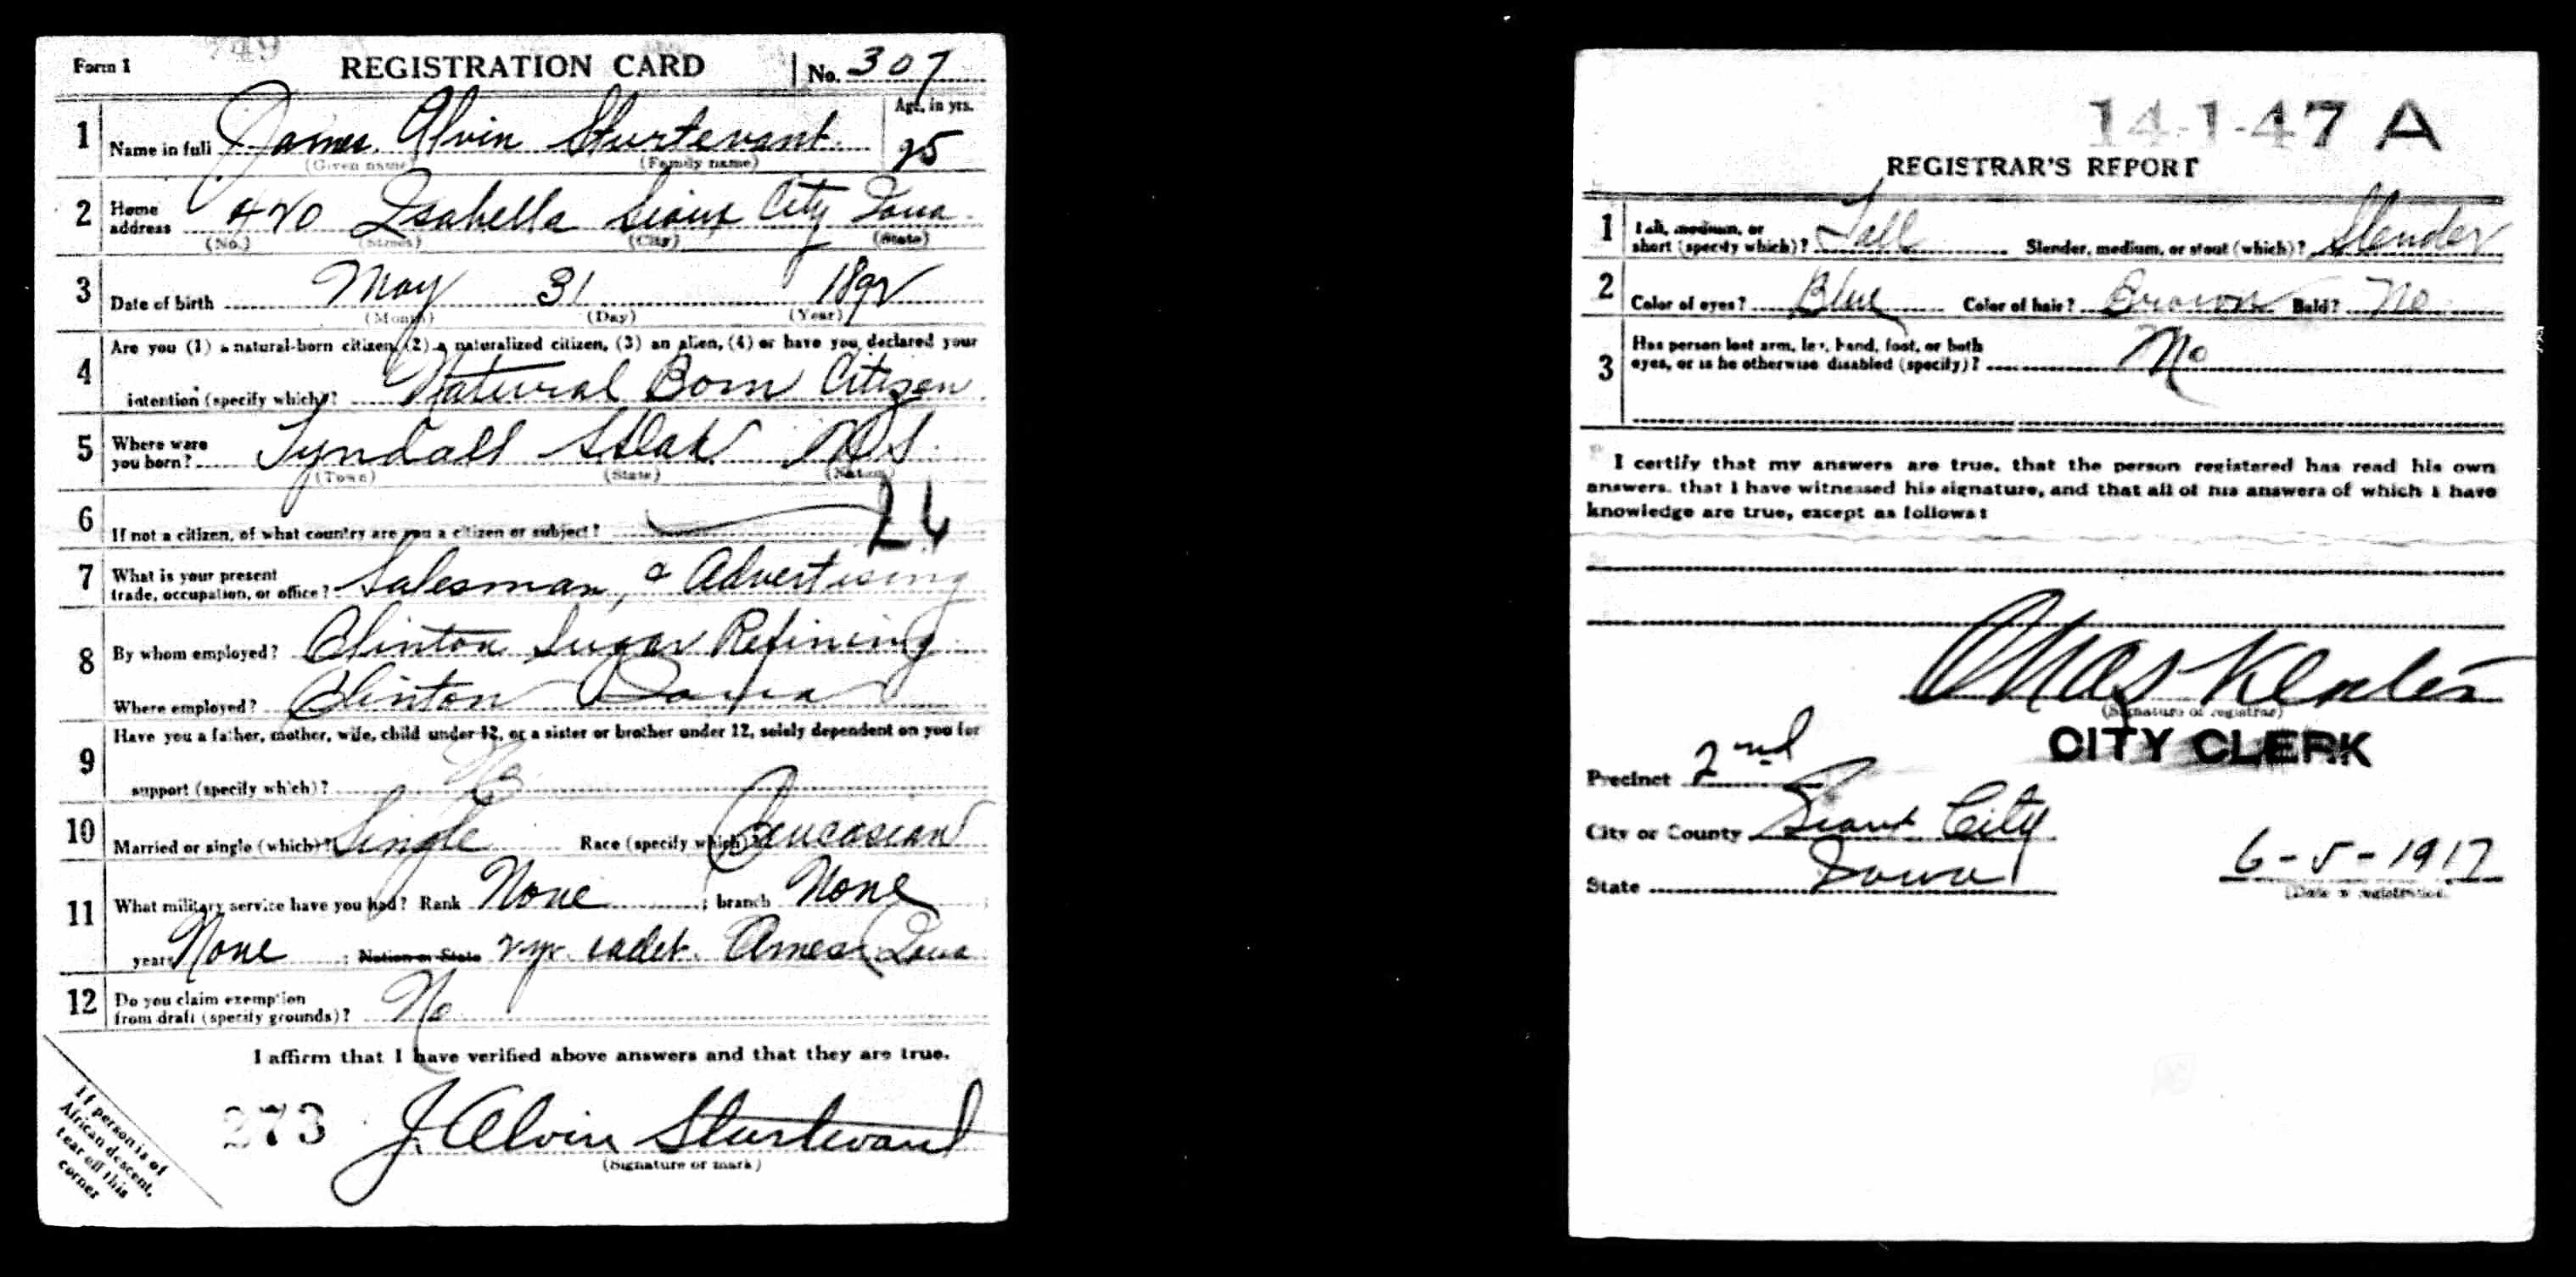 749
Form 1 REGISTRATION CARD No. 307
Age, in yrs.
1 Name in full James Alvin Sturtevant 25
(Given name) (Family name)
2 Home address 420 Isabella Sioux City Iowa
(No.) (Street) (City) (State)
3 Date of birth May 31 1892
(Month) (Day) (Year)
Are you (1) a natural-born citizen, (2) a naturalized citizen, (3) an alien, (4) or have you declared your
4 intention (specify which)? Natural Born Citizen
5 Where were you born? Tyndall S Dak U S
(Town) (State) (Nation)
6 If not a citizen, of what country are you a citizen or subject? 26
7 What is your present trade, occupation, or office? Salesman, & Advertising
8 By whom employed? Clinton Sugar Refining
Where employed? Clinton Iowa
Have you a father, mother, wife, child under 12, or a sister or brother under 12, solely dependent on you for
9 support (specify which)? No
10 Married or single (which)? Single Race (specify which)? Caucasian
11 What military service have you had? Rank None ; branch None
years None ; Nation or State 2 yr. cadet. Ames Iowa
12 Do you claim exemption from draft (specify grounds)? No
I affirm that I have verified above answers and that they are true.
273 J. Alvin Sturtevant
(Signature or mark)
If person is of
African descent,
tear off this
corner
14-1-47 A
REGISTRAR'S REPORT
1 Tall, medium, or short (specify which)? Tall Slender, medium, or stout (which)? Slender
2 Color of eyes? Blue Color of hair? Brown Bald? No
3 Has person lost arm, leg, hand, foot, or both
eyes, or is he otherwise disabled (specify)? No
I certify that my answers are true, that the person registered has read his own
answers, that I have witnessed his signature, and that all of his answers of which I have
knowledge are true, except as follows:
Chas
(Signature of registrar)
CITY CLERK
Precinct 2nd
City or County Sioux City
State Iowa 6-5-1917
(Date of registration)